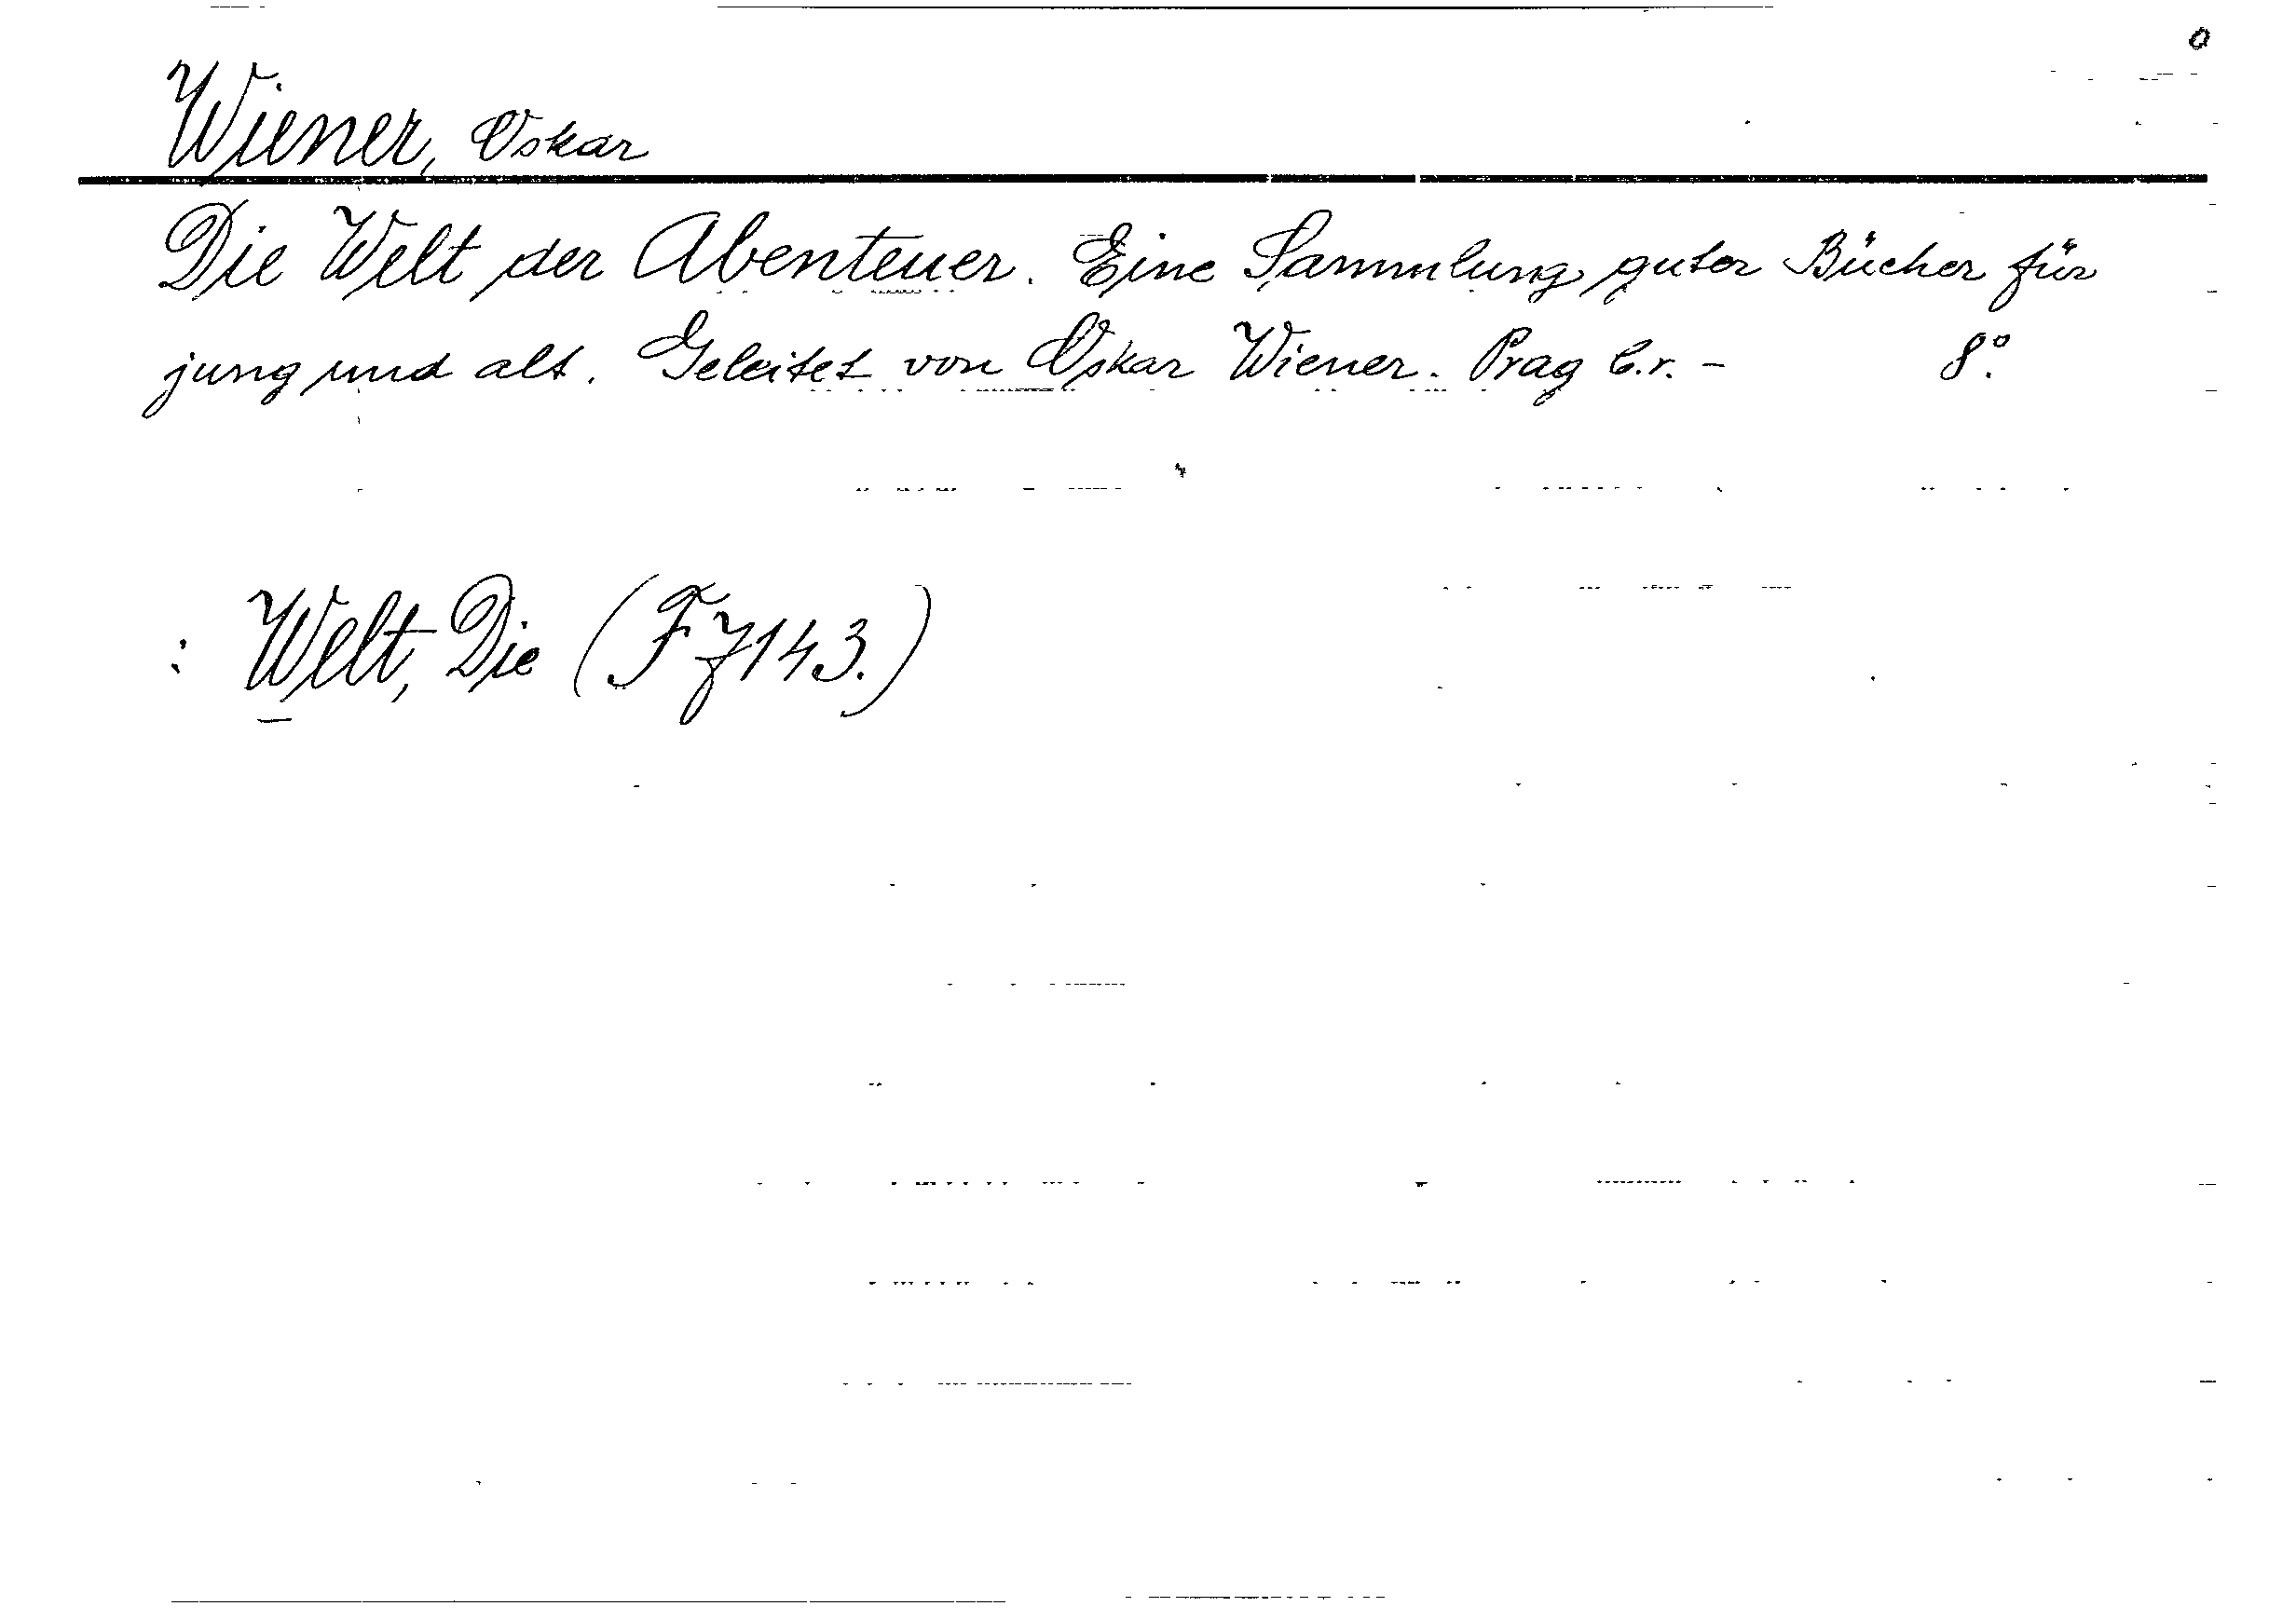 Wiener, Oskar
Die Welt der Abenteuer. Eine Sammlung guter Bücher für
jung und alt. Geleitet von Oskar Wiener. Prag b.r. - 8°.
: Welt, Die (F 7143.)